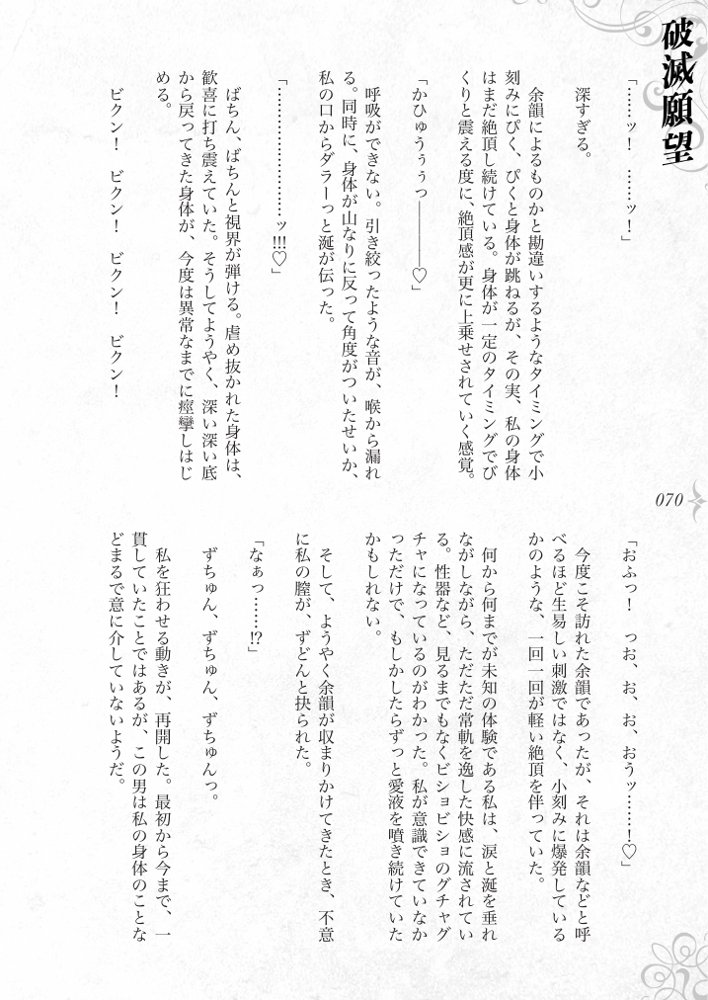 破滅願望
「……ッ！　……ッ！」
深すぎる。
余韻によるものかと勘違いするようなタイミングで小
刻みにぴく、ぴくと身体が跳ねるが、その実、私の身体
はまだ絶頂し続けている。身体が一定のタイミングでび
くりと震える度に、絶頂感が更に上乗せされていく感覚。
「かひゅうぅぅっ――――♡」
呼吸ができない。引き絞ったような音が、喉から漏れ
る。同時に、身体が山なりに反って角度がついたせいか、
私の口からダラーっと涎が伝った。
「……………………ッ!!!♡」
ばちん、ばちんと視界が弾ける。虐め抜かれた身体は、
歓喜に打ち震えていた。そうしてようやく、深い深い底
から戻ってきた身体が、今度は異常なまでに痙攣しはじ
める。
ビクン！　ビクン！　ビクン！　ビクン！
「おふっ！　っお、お、お、おうッ……！♡」
今度こそ訪れた余韻であったが、それは余韻などと呼
べるほど生易しい刺激ではなく、小刻みに爆発している
かのような、一回一回が軽い絶頂を伴っていた。
何から何までが未知の体験である私は、涙と涎を垂れ
ながしながら、ただただ常軌を逸した快感に流されてい
る。性器など、見るまでもなくビショビショのグチャグ
チャになっているのがわかった。私が意識できていなか
っただけで、もしかしたらずっと愛液を噴き続けていた
かもしれない。
そして、ようやく余韻が収まりかけてきたとき、不意
に私の膣が、ずどんと抉られた。
「なぁっ……!?」
ずちゅん、ずちゅん、ずちゅんっ。
私を狂わせる動きが、再開した。最初から今まで、一
貫していたことではあるが、この男は私の身体のことな
どまるで意に介していないようだ。
070